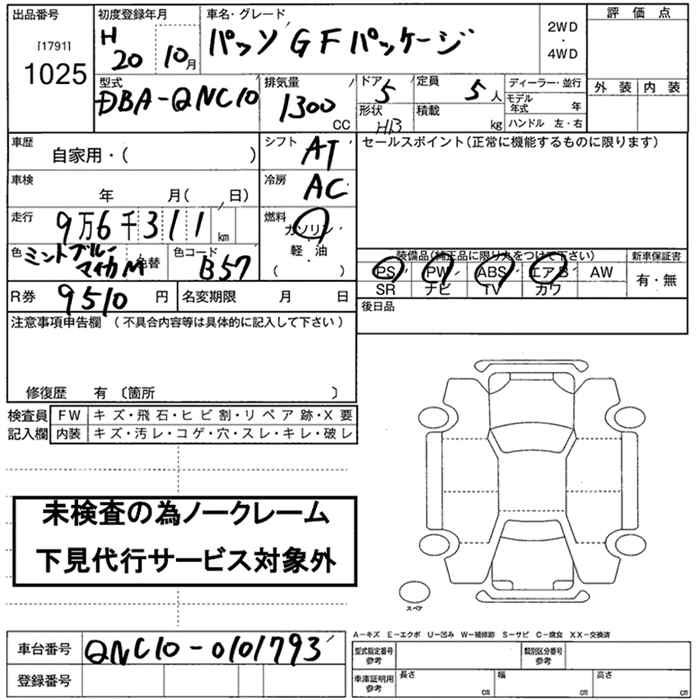 出品番号 初度登録年月 車名・グレード 評価点
[1791] H 20 10月 パッソ GFパッケージ 2WD・4WD
1025
型式 排気量 ドア 5 定員 5人 ディーラー・並行 外装 内装
DBA-QNC10 1300 CC 形状 HB 積載 kg モデル年式 年
ハンドル 左・右
車歴 自家用・( ) シフト AT セールスポイント(正常に機能するものに限ります)
車検 年 月( 日) 冷房 AC
走行 9万6千311km 燃料 ガソリン・軽油・( )
色 ミントブルーマイカM 色替 色コード B57 装備品(純正品に限り丸をつけて下さい) 新車保証書
PS PW ABS エアB AW 有・無
R券 9510円 名変期限 月 日 SR ナビ TV カワ
注意事項申告欄 (不具合内容等は具体的に記入して下さい) 後日品
修復歴 有 〔箇所 〕
検査員 FW キズ・飛石・ヒビ割・リペア跡・X要
記入欄 内装 キズ・汚レ・コゲ・穴・スレ・キレ・破レ
未検査の為ノークレーム
下見代行サービス対象外
スペア
A-キズ E-エクボ U-凹み W-補修跡 S-サビ C-腐食 XX-交換済
車台番号 QNC10-0101793 型式指定番号 参考 類別区分番号 参考
登録番号 車庫証明用 参考 長さ cm 幅 cm 高さ cm